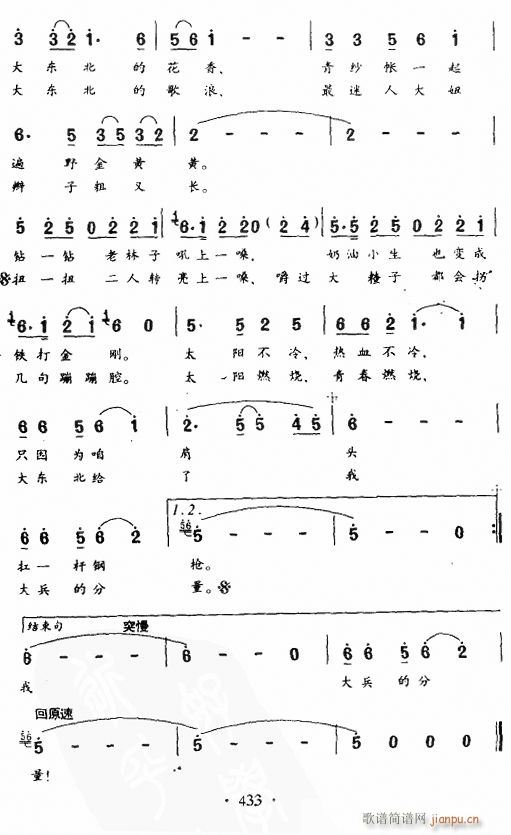 3 3 2 1· 6 | 5 6 1 - - | 3 3 5 6 1
大东北的花香、 青纱帐一起
大东北的歌浪、 最迷人大妞
6· 5 3 5 3 2 | 2 - - - | 2 - - -
遍野金黄黄。
辫子粗又长。
5 2 5 0 2 2 1 | 6·1 2 2 0 (2 4) | 5·5 2 5 0 2 2 1
钻一钻 老林子吼上一嗓, 奶油小生 也变成
扭一扭 二人转亮上一嗓、嚼过大楂子 都会拐
6·1 2 1 6 0 | 5· 5 2 5 | 6 6 2 1· 1
铁打金刚。 太阳不冷、热血不冷、
几句蹦蹦腔。 太阳燃烧、青春燃烧、
6 6 5 6 1 | 2· 5 5 4 5 | 6 - - -
只因为咱肩头
大东北给了我
6 6 5 6 2 | 1.2. 5 - - - | 5 - - 0 :||
扛一杆钢枪。
大兵的分量。
结束句 突慢
6 - - - | 6 - - 0 | 6 6 5 6 2
我 大兵的分
回原速
5 - - - | 5 - - - | 5 0 0 0 ||
量!
· 433 ·
歌谱简谱网
jianpu.cn